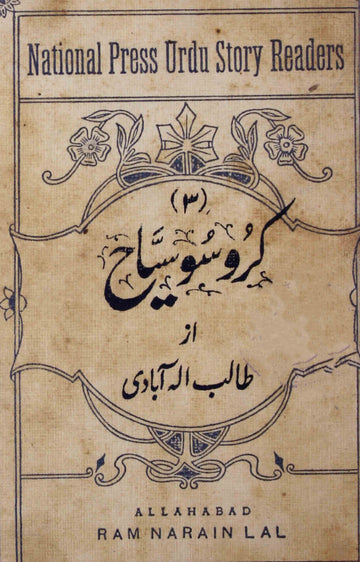 National Press Urdu Story Readers
(۳)
کروسو سیّاح
از
طالب الہ آبادی
ALLAHABAD
RAM NARAIN LAL